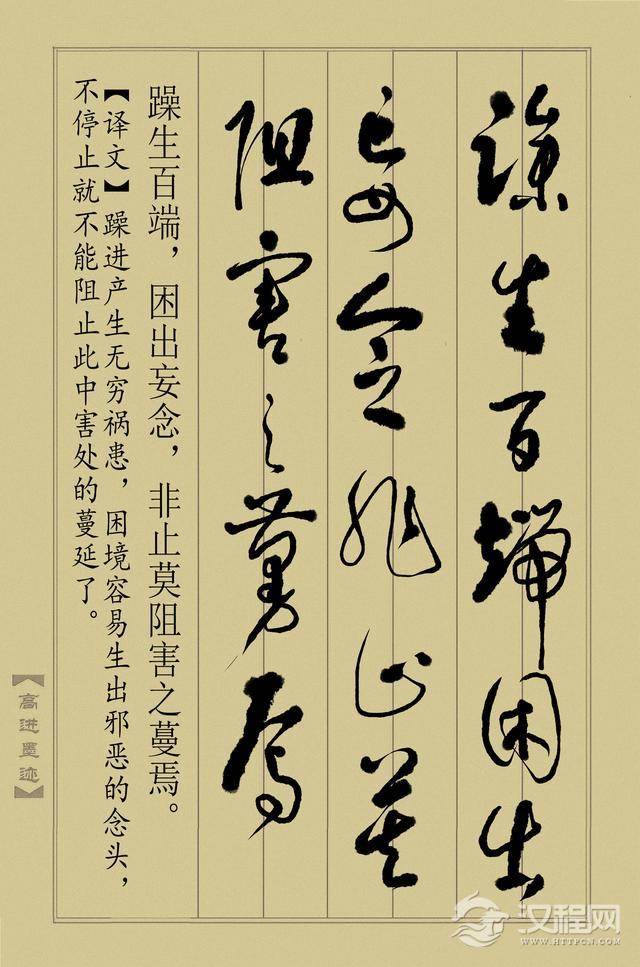 躁生百端困出
妄念非止莫
阻害之蔓焉
躁生百端，困出妄念，非止莫阻害之蔓焉。
【译文】躁进产生无穷祸患，困境容易生出邪恶的念头，
不停止就不能阻止此中害处的蔓延了。
【高进墨迹】
汉程网
WWW.HTTPCN.COM